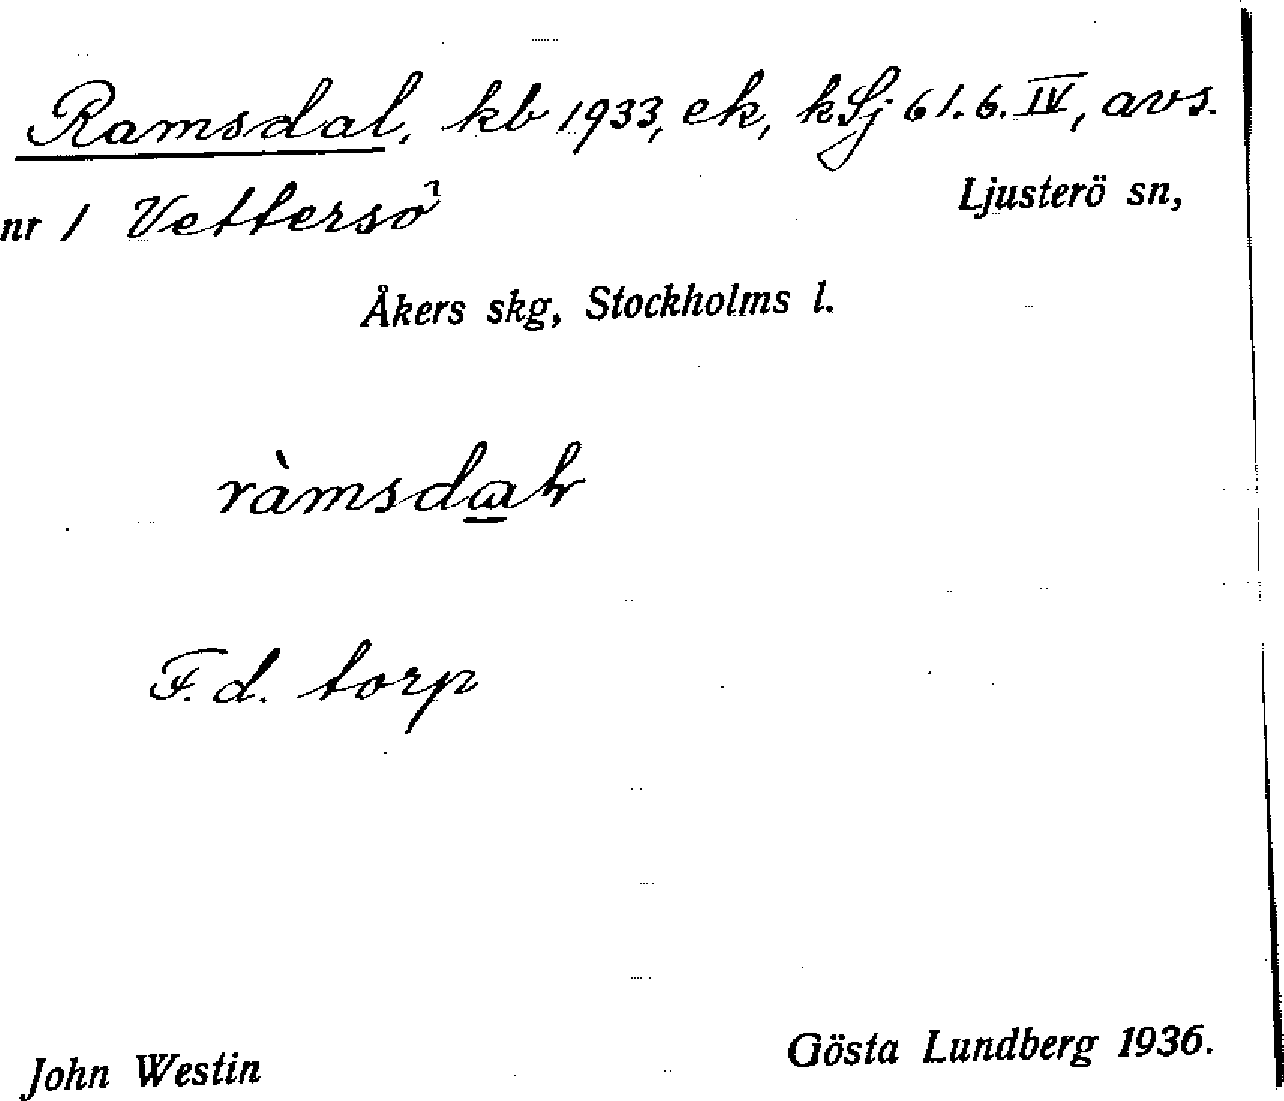 Ramsdal, kb 1933, ek, kLj 61.6.IV, avs.
nr 1 Vettersö Ljusterö sn,
Åkers skg, Stockholms l.
ràmsdaꞎ
F.d. torp
John Westin Gösta Lundberg 1936.